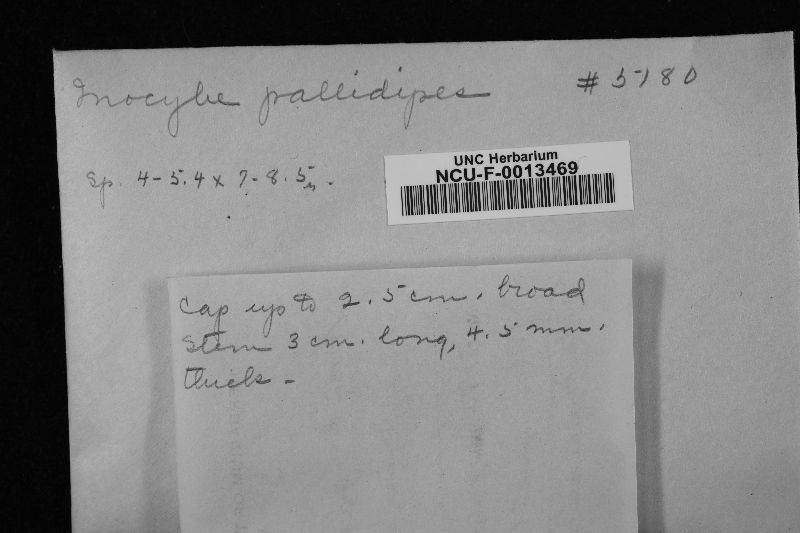 Inocybe pallidipes # 5180
Sp. 4-5.4 x 7-8.5µ.
UNC Herbarium
NCU-F-0013469
Cap up to 2.5 cm. broad
Stem 3 cm. long, 4.5 mm.
thick -